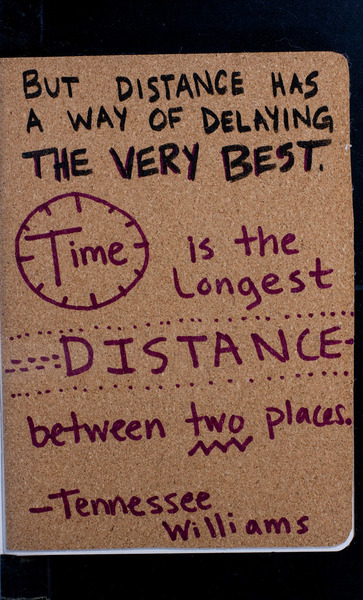 BUT DISTANCE HAS
A WAY OF DELAYING
THE VERY BEST.
Time is the
Longest
DISTANCE
between two places.
-Tennessee
Williams